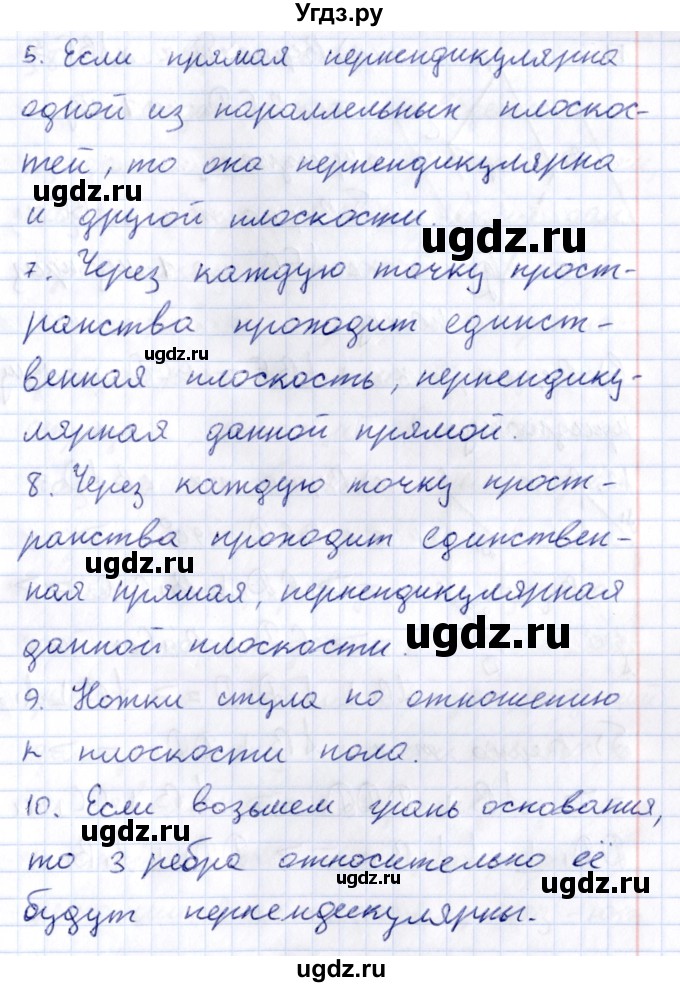 Угдз.ру
5. Если прямая перпендикулярна
одной из параллельных плоскос-
тей, то она перпендикулярна
ugdz.ru
и другой плоскости.
ugdz.ru
7. Через каждую точку прост-
ранства проходит единст-
ugdz.ru
венная плоскость, перпендику-
лярная данной прямой.
8. Через каждую точку прост-
ранства проходит единствен-
ugdz.ru
ная прямая, перпендикулярная
данной плоскости.
ugdz.ru
9. Ножки стула по отношению
к плоскости пола.
10. Если возьмем грань основания,
ugdz.ru
то 3 ребра относительно её
ugdz.ru
ugdz.ru
будут перпендикулярны.
ugdz.ru